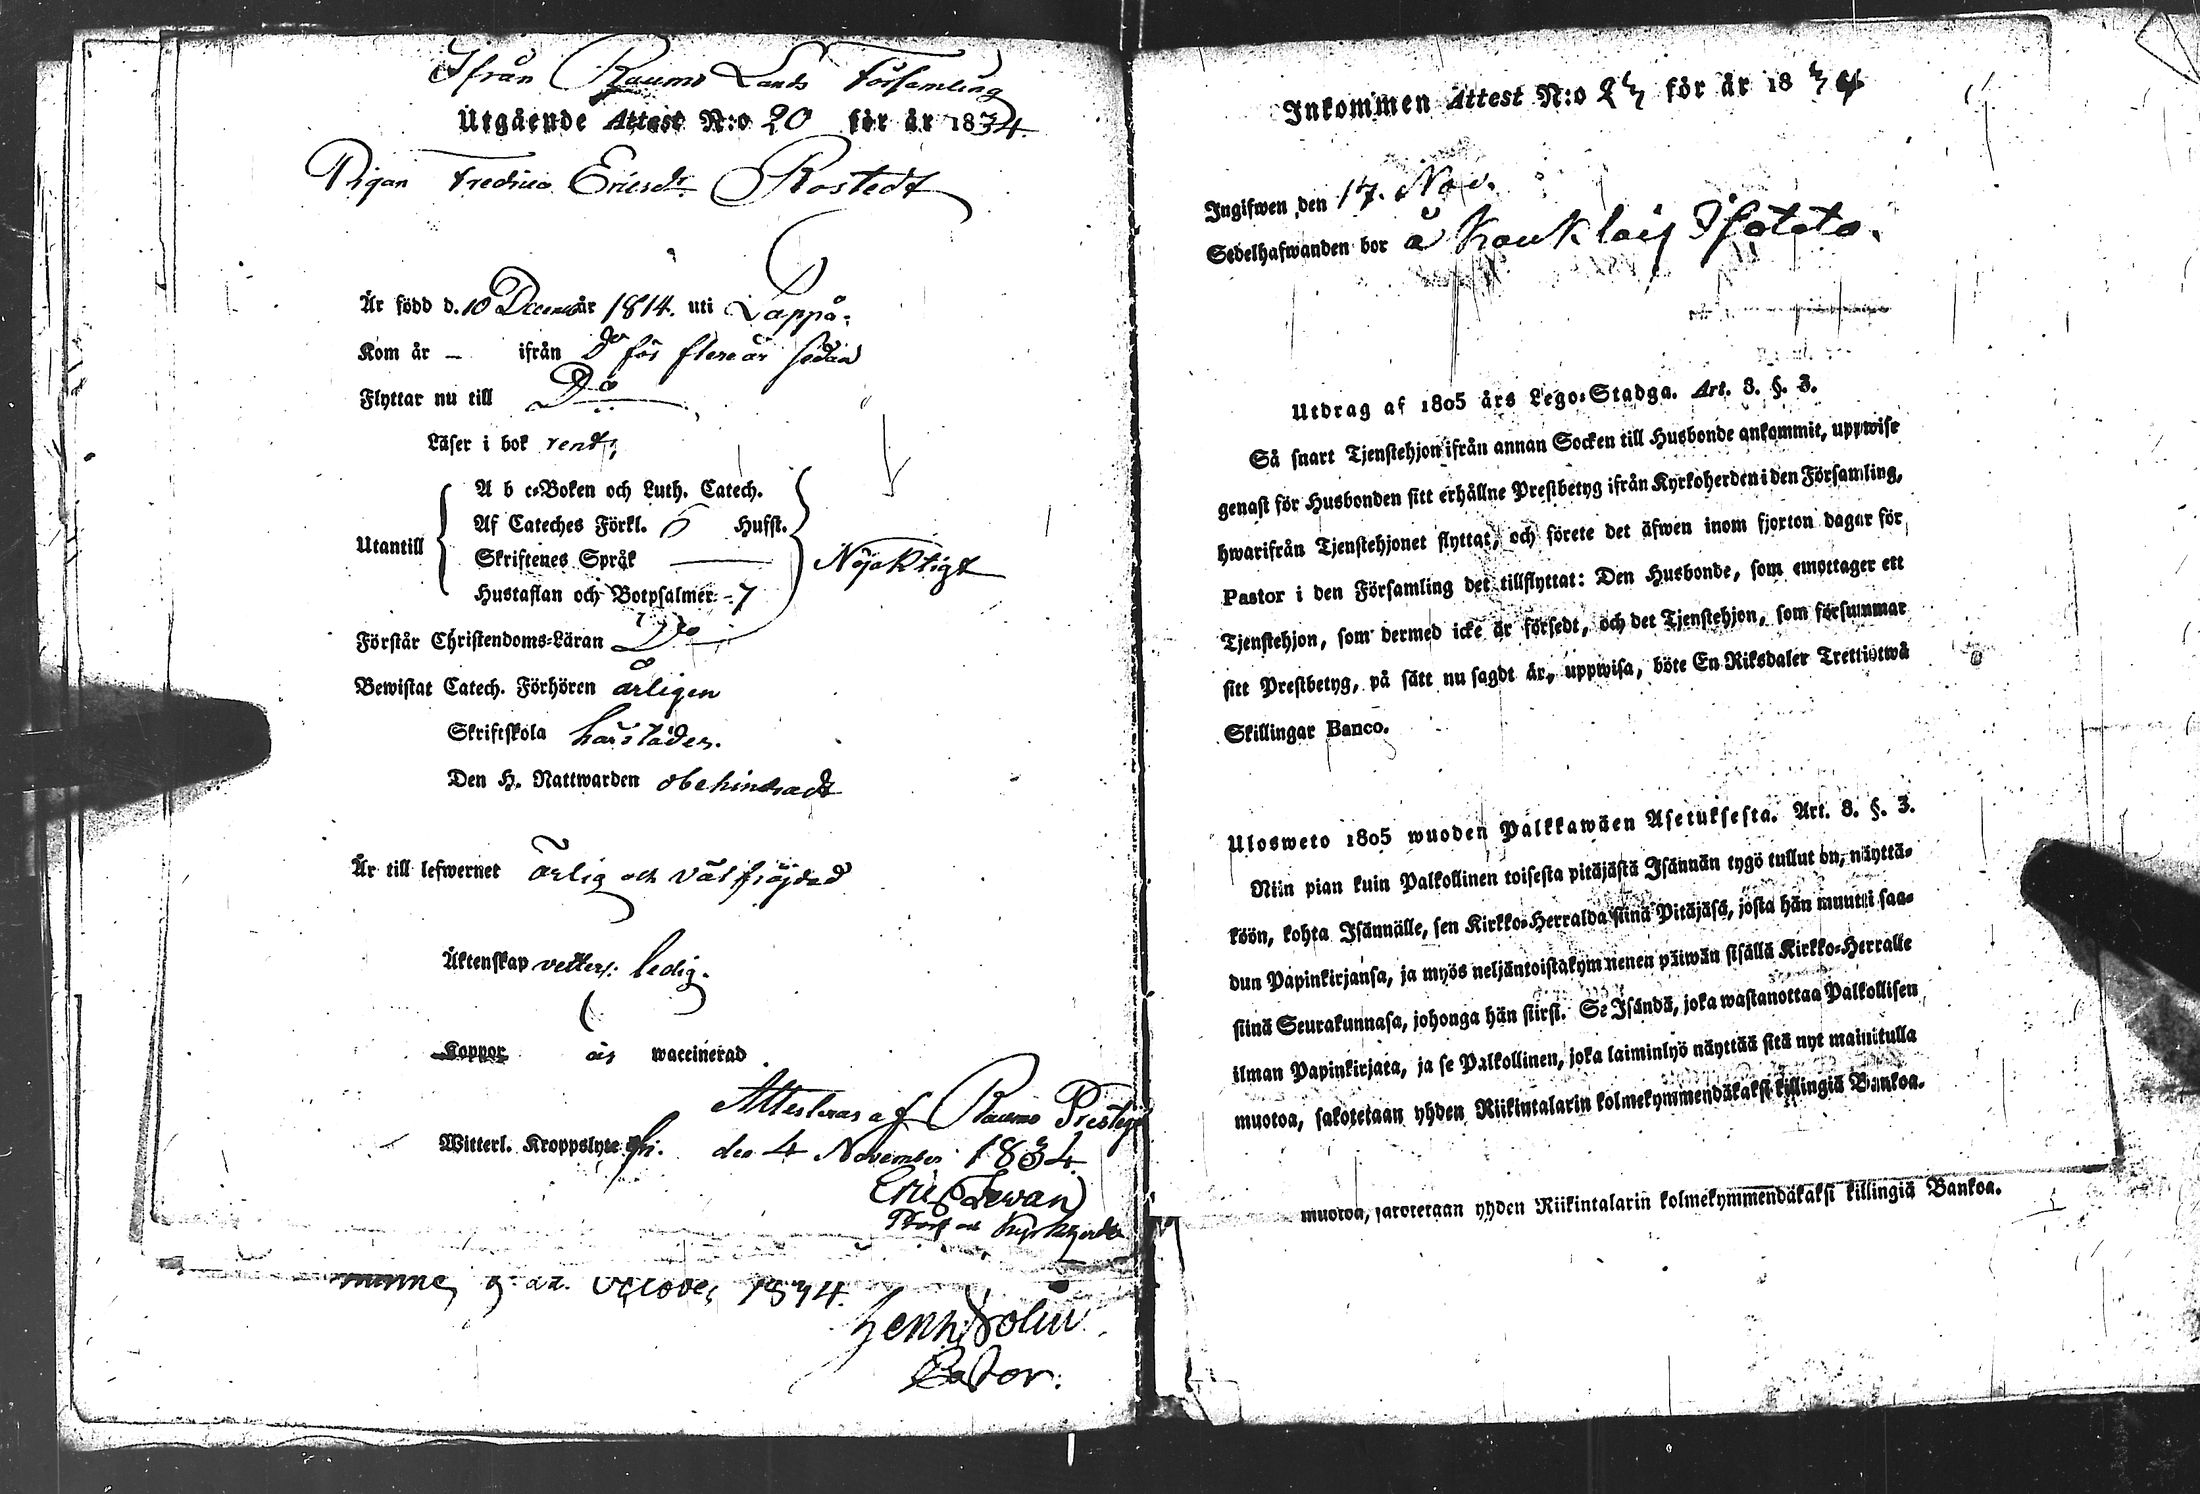 Ifrån Raumo Lands Församling
Utgående Attest N:o 20 för år 1834.
Pigan Fredrica Ericsdr Rostedt
Är född d. 10 Decemb år 1814. uti Lappå.
Kom år — ifrån Do för flere år sedan
Flyttar nu till Do
Läser i bok rent;
Utantill
A b c-Boken och Luth. Catech.
Af Cateches Förkl. 6 Hufst.
Skriftenes Språk —
Hustaflan och Botpsalmer - 7
Nöjaktigt
Förstår Christendoms-Läran Do
Bewistat Catech. Förhören årligen
Skriftskola härstädes.
Den H. Nattwarden obehindradt
Är till lefwernet ärlig och välfrejdad
Äktenskap vetterl. ledig.
Koppor är waccinerad
Attesteras af Raumo Prestegd
Witterl. Kroppslyte fri. den 4 November 1834.
Eric Lewan
Prost och Kyrkoherde
October 1834.
Pastor.
Inkommen Attest N:o 23 för år 1834
Ingifwen den 17. Nov.
Sedelhafwanden bor å Kauklais Isotalo.
Utdrag af 1805 års Lego-Stadga. Art. 8. §. 3.
Så snart Tjenstehjon ifrån annan Socken till Husbonde ankommit, uppwise
genast för Husbonden sitt erhållne Prestbetyg ifrån Kyrkoherden i den Församling,
hwarifrån Tjenstehjonet flyttat, och förete det äfwen inom fjorton dagar för
Pastor i den Församling det tillflyttat: Den Husbonde, som emottager ett
Tjenstehjon, som dermed icke är försedt, och det Tjenstehjon, som försummar
sitt Prestbetyg, på sätt nu sagdt är, uppwisa, böte En Riksdaler Trettiotwå
Skillingar Banco.
Ulosweto 1805 wuoden Palkkawäen Asetuksesta. Art. 8. §. 3.
Niin pian kuin Palkollinen toisesta pitäjästä Isännän tygö tullut on, näyttä-
köön, kohta Isännälle, sen Kirkko-Herralda siinä Pitäjäsä, josta hän muutti saa-
dun Papinkirjansa, ja myös neljäntoistakymmenen päiwän sisällä Kirkko-Herralle
siinä Seurakunnasa, johonga hän siirsi. Se Isändä, joka wastanottaa Palkollisen
ilman Papinkirjata, ja se Palkollinen, joka laiminlyö näyttää sitä nyt mainitulla
muotoa, sakotetaan yhden Riikintalarin kolmekymmendäkaksi killingiä Bankoa.
muotoa, sakotetaan yhden Riikintalarin kolmekymmendäkaksi killingiä Bankoa.